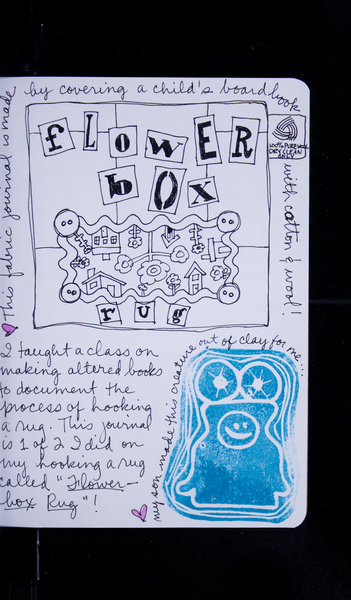 This fabric journal is made
by covering a child's board book
with cotton & wool!
flowER
bOX
rug
100% PURE WOOL
DRY CLEAN
ONLY
I taught a class on
making altered books
to document the
process of hooking
a rug. This journal
is 1 of 2 I did on
my hooking a rug
called "Flower-
box Rug"!
my son made this creature out of clay for me...